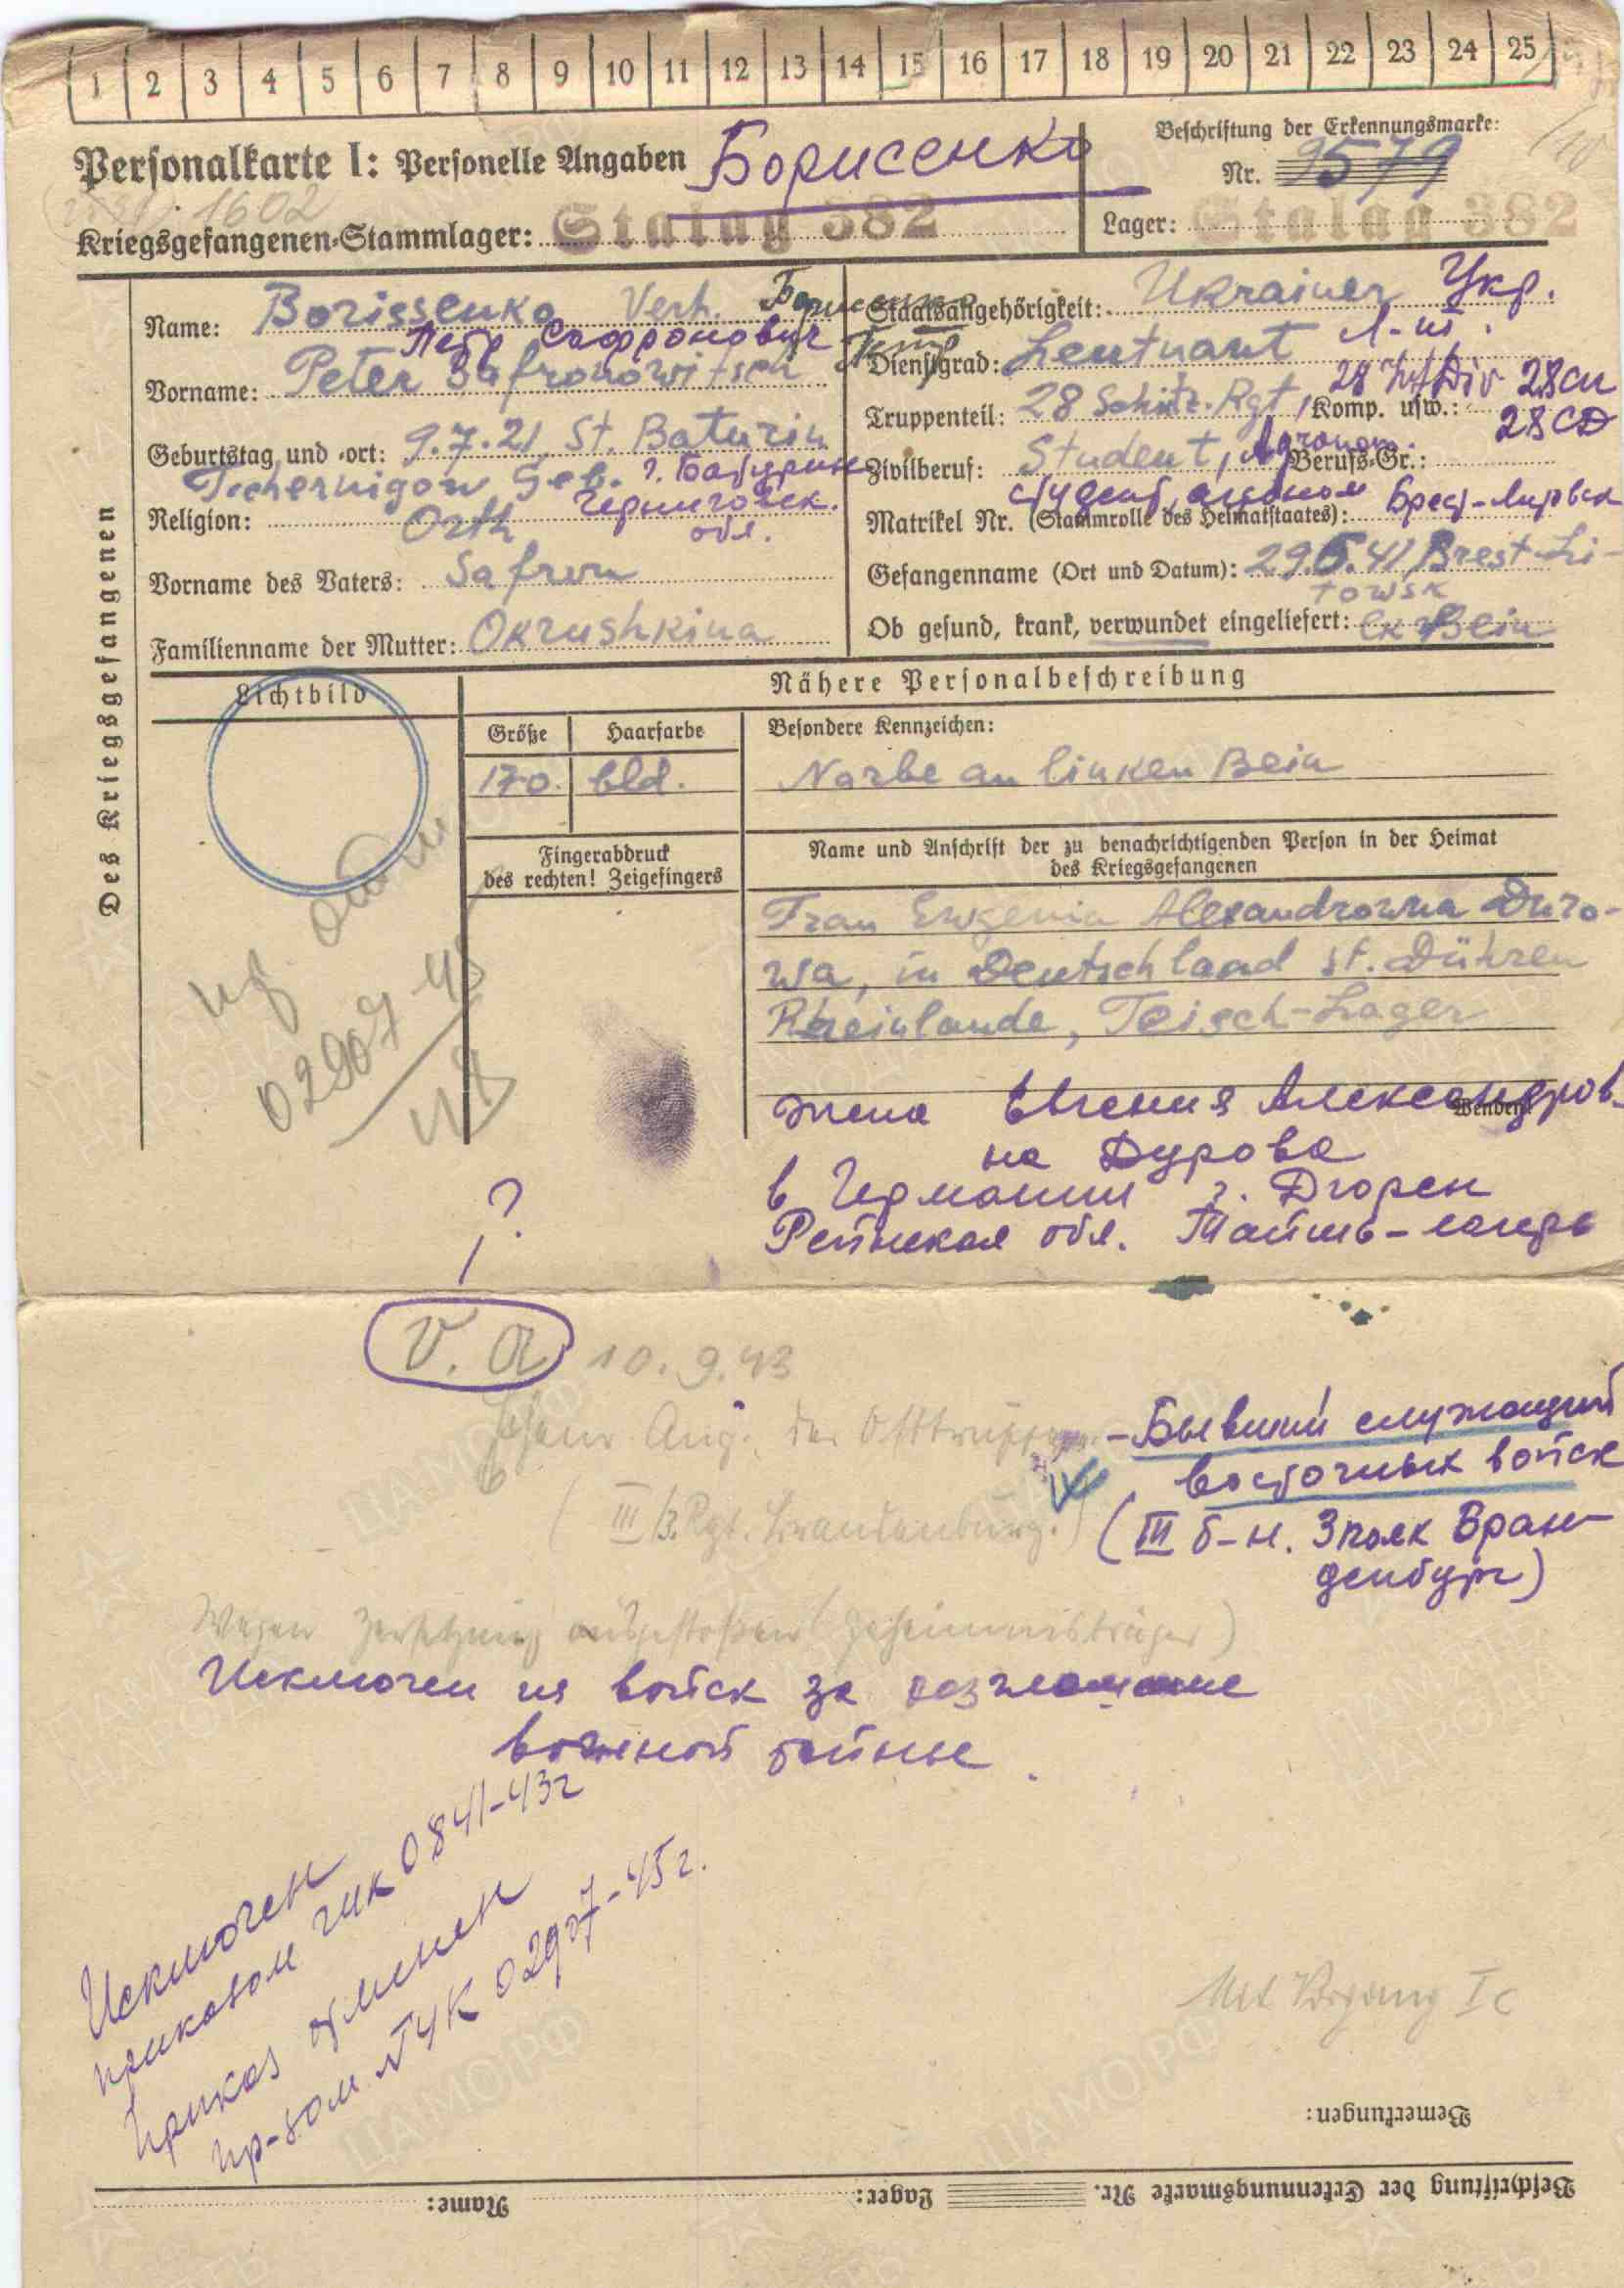 1 2 3 4 5 6 7 8 9 10 11 12 13 14 15 16 17 18 19 20 21 22 23 24 25
Personalkarte I: Personelle Angaben
Борисенко
Beschriftung der Erkennungsmarke:
Nr. 9579
1602
Kriegsgefangenen-Stammlager: Stalag 382
Lager: Stalag 382
Des Kriegsgefangenen
Name: Borissenko Verh.
Петр Сафронович
Vorname: Peter Safronowitsch
Geburtstag und -ort: 9.7.21, St. Baturin
Tschernigow Geb. г. Батурин
Religion: Orth Черниговск.
обл.
Vorname des Vaters: Safron
Familienname der Mutter: Okrushkina
Staatsangehörigkeit: Ukrainer Укр.
Dienstgrad: Leutnant л-нт.
28 Inf Div 28сп
Truppenteil: 28 Schütz. Rgt, Komp. usw.: 28 СД
Zivilberuf: Student, Agronom. Berufs-Gr.:
студент, агроном Брест-Литовск
Matrikel Nr. (Stammrolle des Heimatstaates):
Gefangenname (Ort und Datum): 29.6.41 Brest-Li-
towsk
Ob gesund, krank, verwundet eingeliefert: Bein
Lichtbild
Nähere Personalbeschreibung
Größe Haarfarbe Besondere Kennzeichen:
170. bld. Narbe an linken Bein
Fingerabdruck
des rechten! Zeigefingers
Name und Anschrift der zu benachrichtigenden Person in der Heimat
des Kriegsgefangenen
Frau Ewgenia Alexandrowna Duro-
wa, in Deutschland st. Dühren
Rheinlande, Teisch-Lager
Wenden!
жена Евгения Александров-
на Дурова
в Германии г. Дюрен
Рейнская обл. Тайшь-лагерь
02907-45
?
V. a 10.9.43
Ang. der Osttruppen
(III/3. Rgt. Brandenburg.)
- Бывший служащий
восточных войск
(III б-н. 3 полк Бран-
денбург)
Wegen Zersetzung ausgestoßen (Geheimnisträger)
Исключен из войск за разглашение
военной тайны.
Исключен
приказом ГУК 0841-43г
приказ отменен
пр-зом ГУК 02907-45г.
Mit Vorgang Ic
Bemerkungen:
Beschriftung der Erkennungsmarke Nr. Lager: Name: